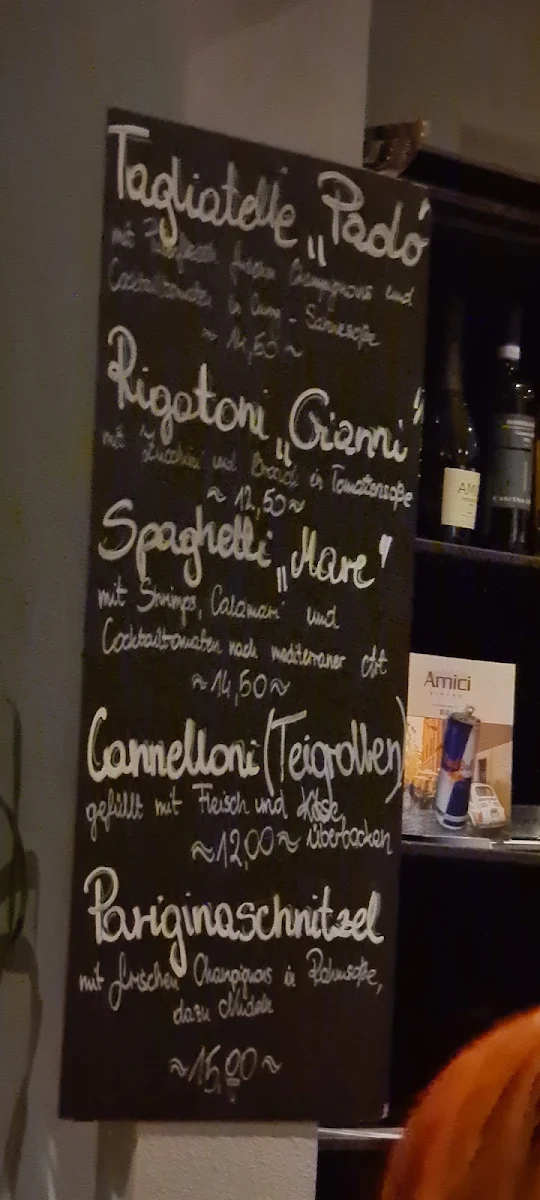 Tagliatelle „Pado"
mit frischen Champignons und
Cocktailtomaten in Curry-Sahnesoße
~ 14,50 ~
Rigatoni „Gianni"
mit Zucchini und Broccoli in Tomatensoße
~ 12,50 ~
Spaghetti „Mare"
mit Shrimps, Calamari und
Cocktailtomaten nach mediterraner Art
~ 14,50 ~
Cannelloni (Teigrollen)
gefüllt mit Fleisch und Käse,
~ 12,00 ~ überbacken
Pariginaschnitzel
mit frischen Champignons in Rahmsoße,
dazu Nudeln
~ 15,00 ~
Amici